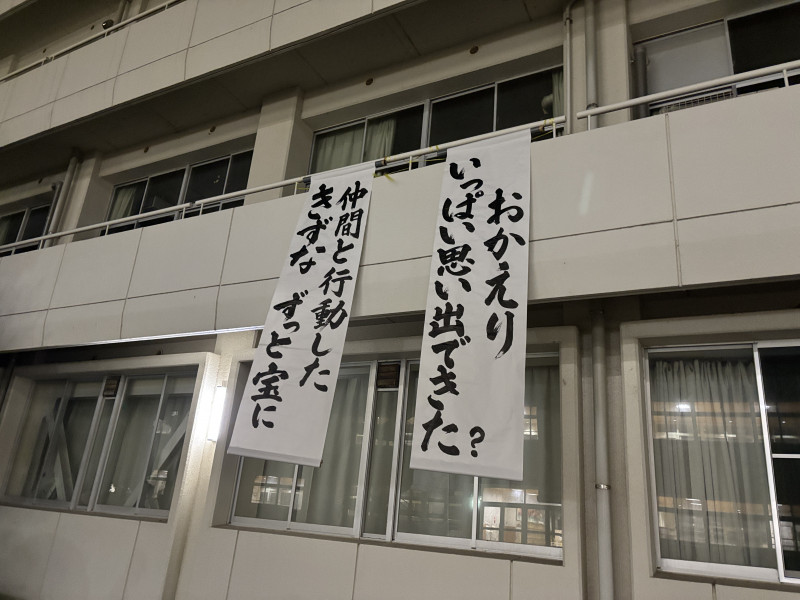 おかえり
いっぱい思い出できた?
仲間と行動した
きずな ずっと宝に